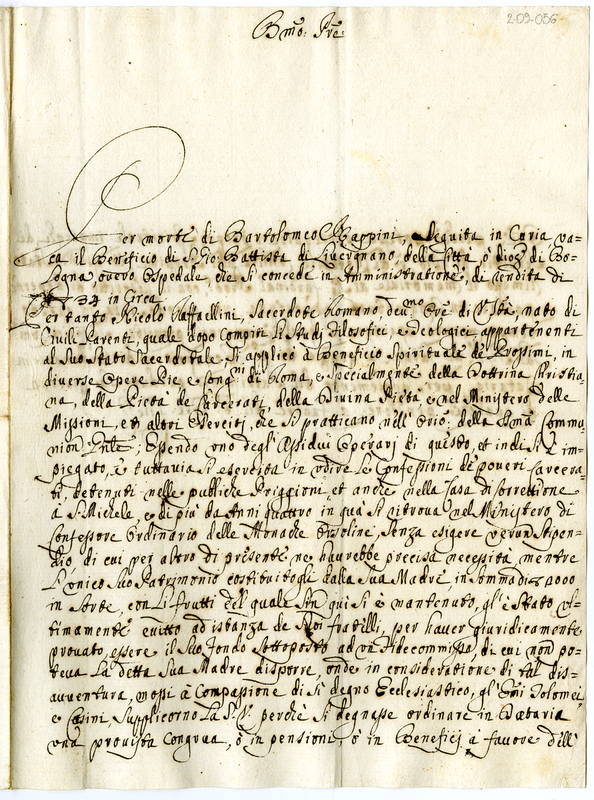 2-09-056
Bmo: Pre:
Per morte di Bartolomeo Bappini, seguita in Curia, va=
ca il Benificio di S. Gio: Battista di Livergnano, della Città, ò dioc.i di Bo=
logna, overo Ospedale, che si concede in Amministratione, di rendita di
34 in Circa
Per tanto Nicolò Raffaellini, Sacerdote Romano, dev.mo Ore di V. Stà, nato di
Civili Parenti, quale dopo compiti li Studj Filosofici, e Teologici appartenenti
al Suo Stato Sacerdotale Si applicò à Beneficio Spirituale de Prossimi, in
diverse Opere Pie, e Cong.ni di Roma, e Specialmente della Dottrina Christia=
na, della Pietà de Carcerati, della Divina Pietà e nel Ministero delle
Missioni, et altri Esercitj, che Si pratticano nell' Orio: della Gnãl Commu=
nion Pnte; Essendo uno degl' Assidui Operarj di questo, et indi Si è im=
piegato, e tuttavia Si esercita in udire Le Confessioni de poveri Carcera=
ti, detenuti nelle publiche Priggioni, et anche nella Casa di Correttione
à S. Michele e di più da Anni quattro in qua Si ritrova nel Ministero di
Confessore Ordinario delle Monache Orsoline, Senza esigere verun Stipen=
dio, di cui per altro di presente ne haurebbe precisa necessità, mentre
L'unico Suo Patrimonio costituitogli dalla Sua Madre, in Somma di 2000
in Sorte, con Li frutti del quale Sin qui Si è mantenuto, gl'è Stato ul=
timamente evitto ad istanza de Suoi fratelli, per haver giuridicamente
provato, essere il Suo fondo Sottoposto ad un Fidecommisso, di cui non po=
teva La detta Sua Madre disporre, onde in consideratione di tal dis=
avventura, mossi à Compassione di Sì degno Ecclesiastico, gl' Emi Tolomei,
e Casini, Supplicorno La S.V. perche Si degnasse ordinare in Dataria
una provista congrua, ò in pensioni, ò in Beneficj à favore dell'